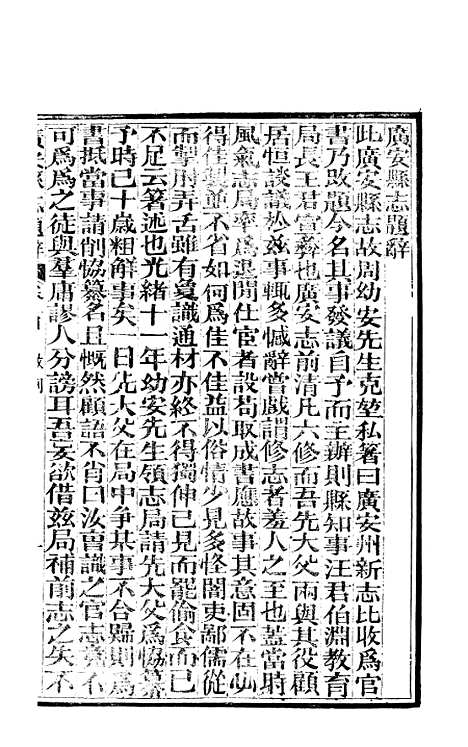 廣安縣志題辭
此廣安縣志故周幼安先生克堃私箸曰廣安州新志比收爲官
書乃改題今名其事發議自予而主辦則縣知事汪君伯淵教育
局長王君宣彝也廣安志前清凡六修而吾先大父兩與其役顧
居恒談議於兹事輒多憾辭嘗戲謂修志者羞人之至也蓋當時
風氣志局率爲退閒仕宦者設苟取成書應故事其意固不在此
得佳與並不省如何爲佳不佳益以俗情少見多怪閽吏鄙儒從
而掣肘弄舌雖有奧識通材亦終不得獨伸己見而罷偷食而已
不足云箸述也光緒十一年幼安先生領志局請先大父爲協纂
予時已十歲粗解事矣一日先大父在局中爭某事不合歸則爲
書抵當事請削協纂名且慨然顧語不肖曰汝曾識之官志竟不
可爲爲之徒與羣庸謬人分謗耳吾妄欲借兹局補前志之矣不